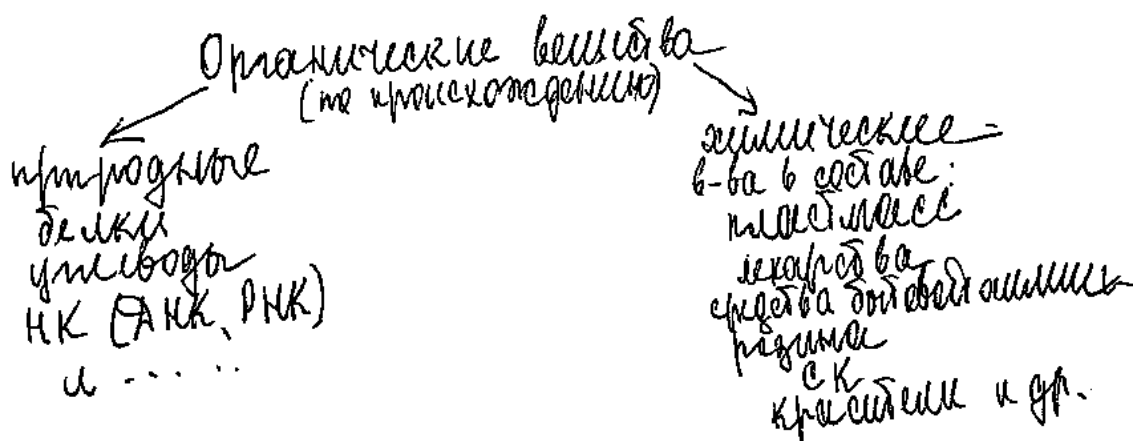 Органические вещества
(по происхождению)
природные
белки
углеводы
НК (ДНК, РНК)
и .....
химические -
в-ва в составе:
пластмасс
лекарства
средства бытовой химии
резина
СК
красители и др.